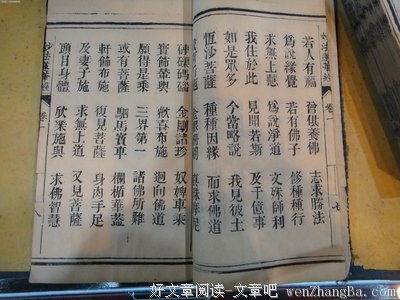 妙法蓮華經 卷一
若人有福 曾供養佛 志求勝法
為說緣覺 若有佛子 修種種行
求無上慧 為說淨道 文殊師利
我住於此 見聞若斯 及千億事
如是眾多 今當略說 我見彼土
恆沙菩薩 種種因緣 而求佛道
金銀珊瑚 真珠摩尼
硨磲碼碯 金剛諸珍 奴婢車乘
寶飾輦輿 歡喜布施 迴向佛道
願得是乘 三界第一 諸佛所歎
或有菩薩 駟馬寶車 欄楯華蓋
軒飾布施 復見菩薩 身肉手足
及妻子施 求無上道 又見菩薩
頭目身體 欣樂施與 求佛智慧
妙法蓮華經 卷一
好文章阅读-文章吧
wenZhangBa.com